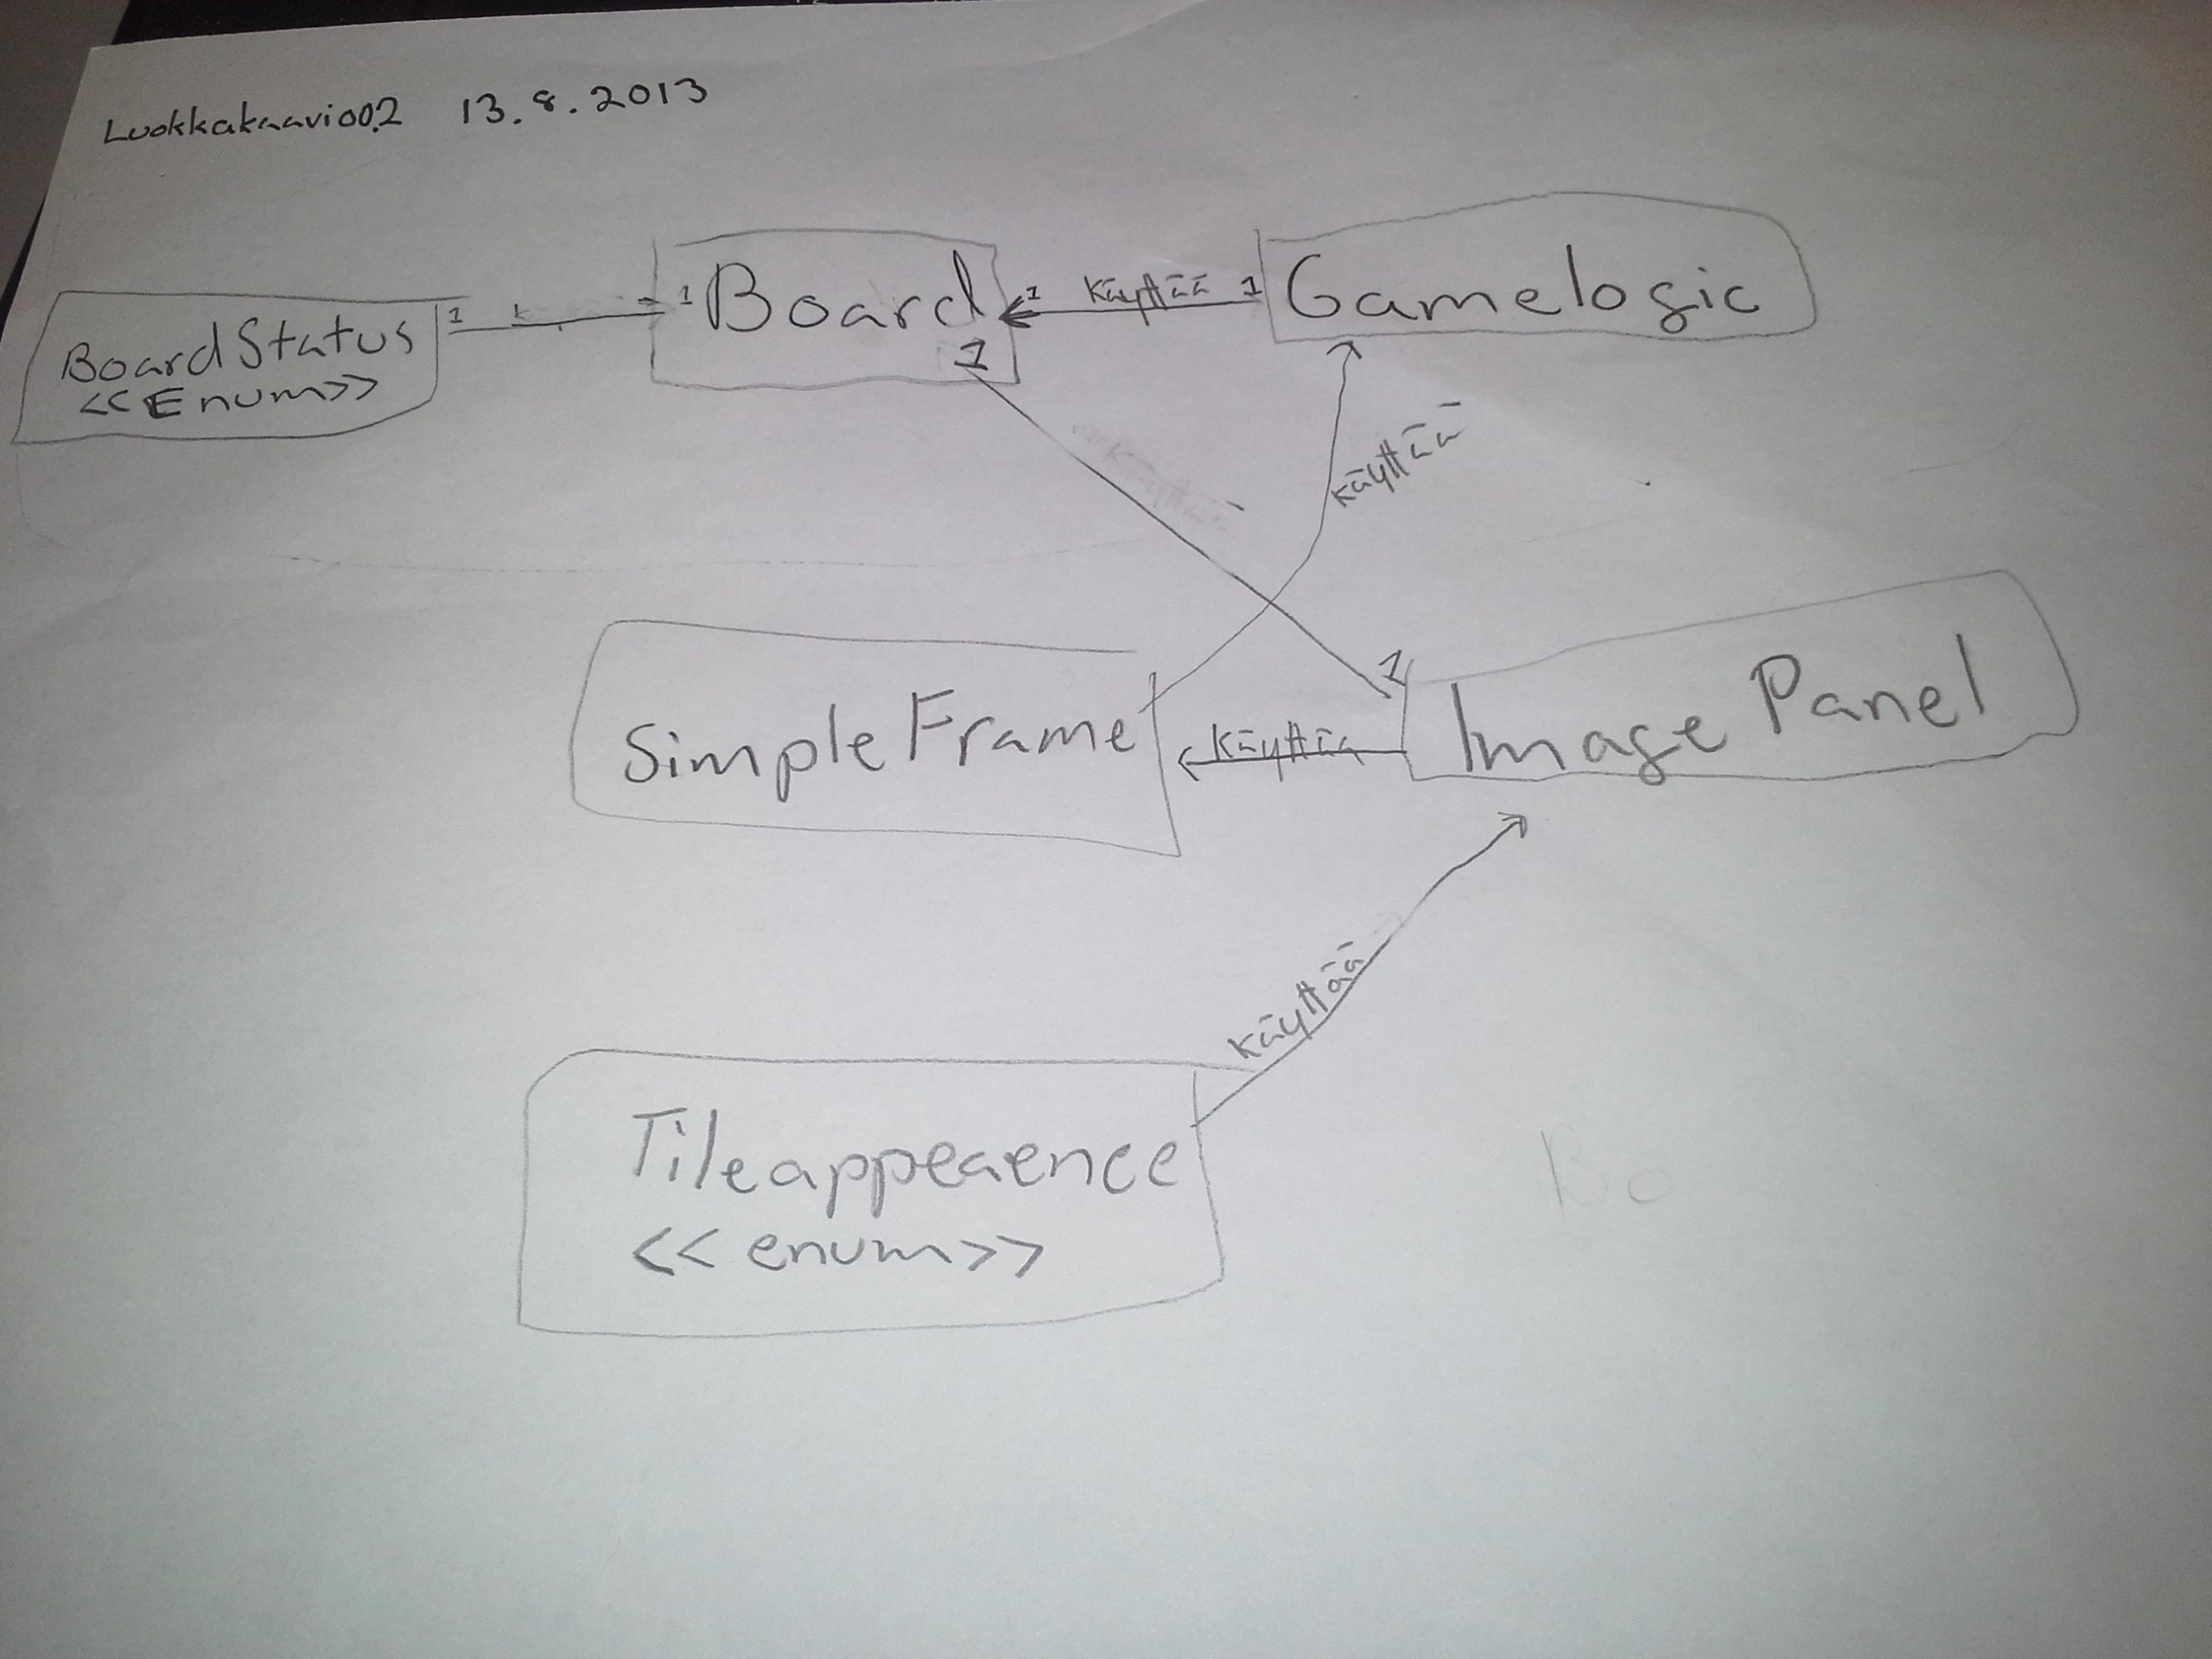 Luokkakaavio0.2 13.8.2013
BoardStatus
<<Enum>>
1
1
Board
1
1
käyttää
1
Gamelogic
käyttää
SimpleFrame
käyttää
1
Image Panel
käyttää
Tileappearence
<<enum>>
Bo